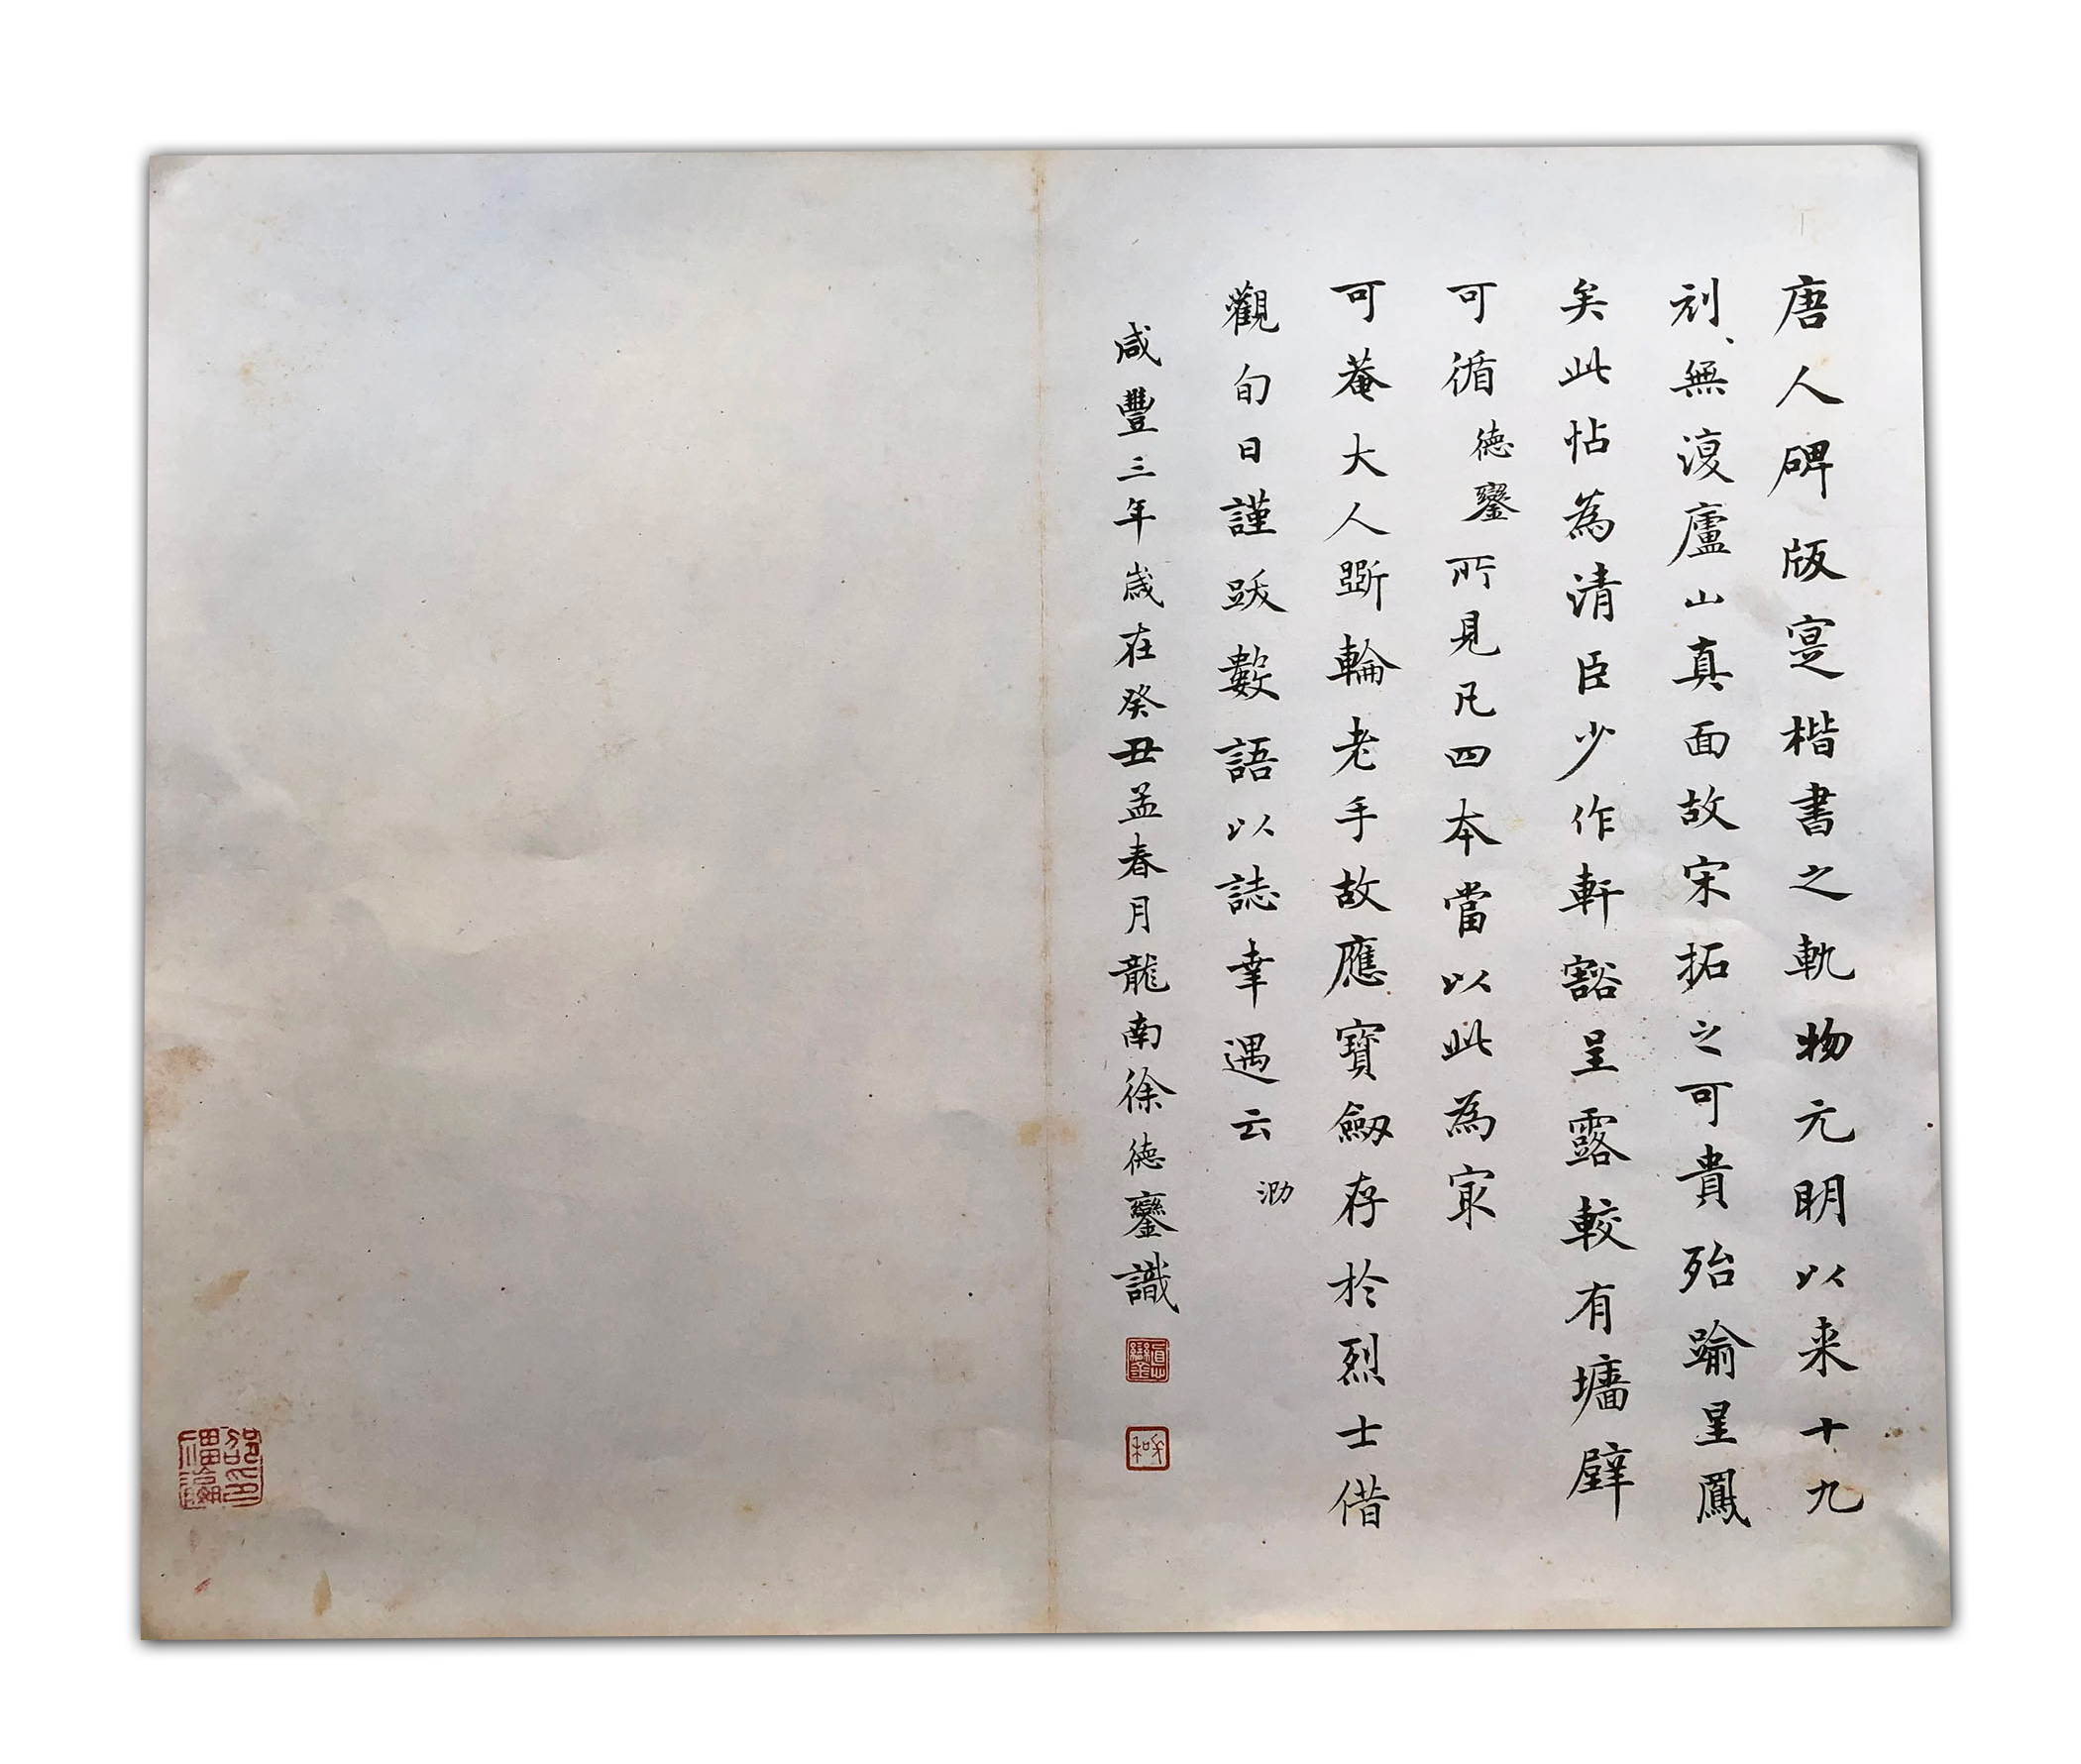 唐人碑版寔楷書之軌物元明以来十九
刓無復廬山真面故宋拓之可貴殆踰星鳳
矣此帖為清臣少作軒豁呈露較有墻壁
可循德鑾所見凡四本當以此為㝡
可菴大人斲輪老手故應寶劒存於烈士借
觀旬日謹跋數語以誌幸遇云 泐
咸豐三年歲在癸丑孟春月龍南徐德鑾識